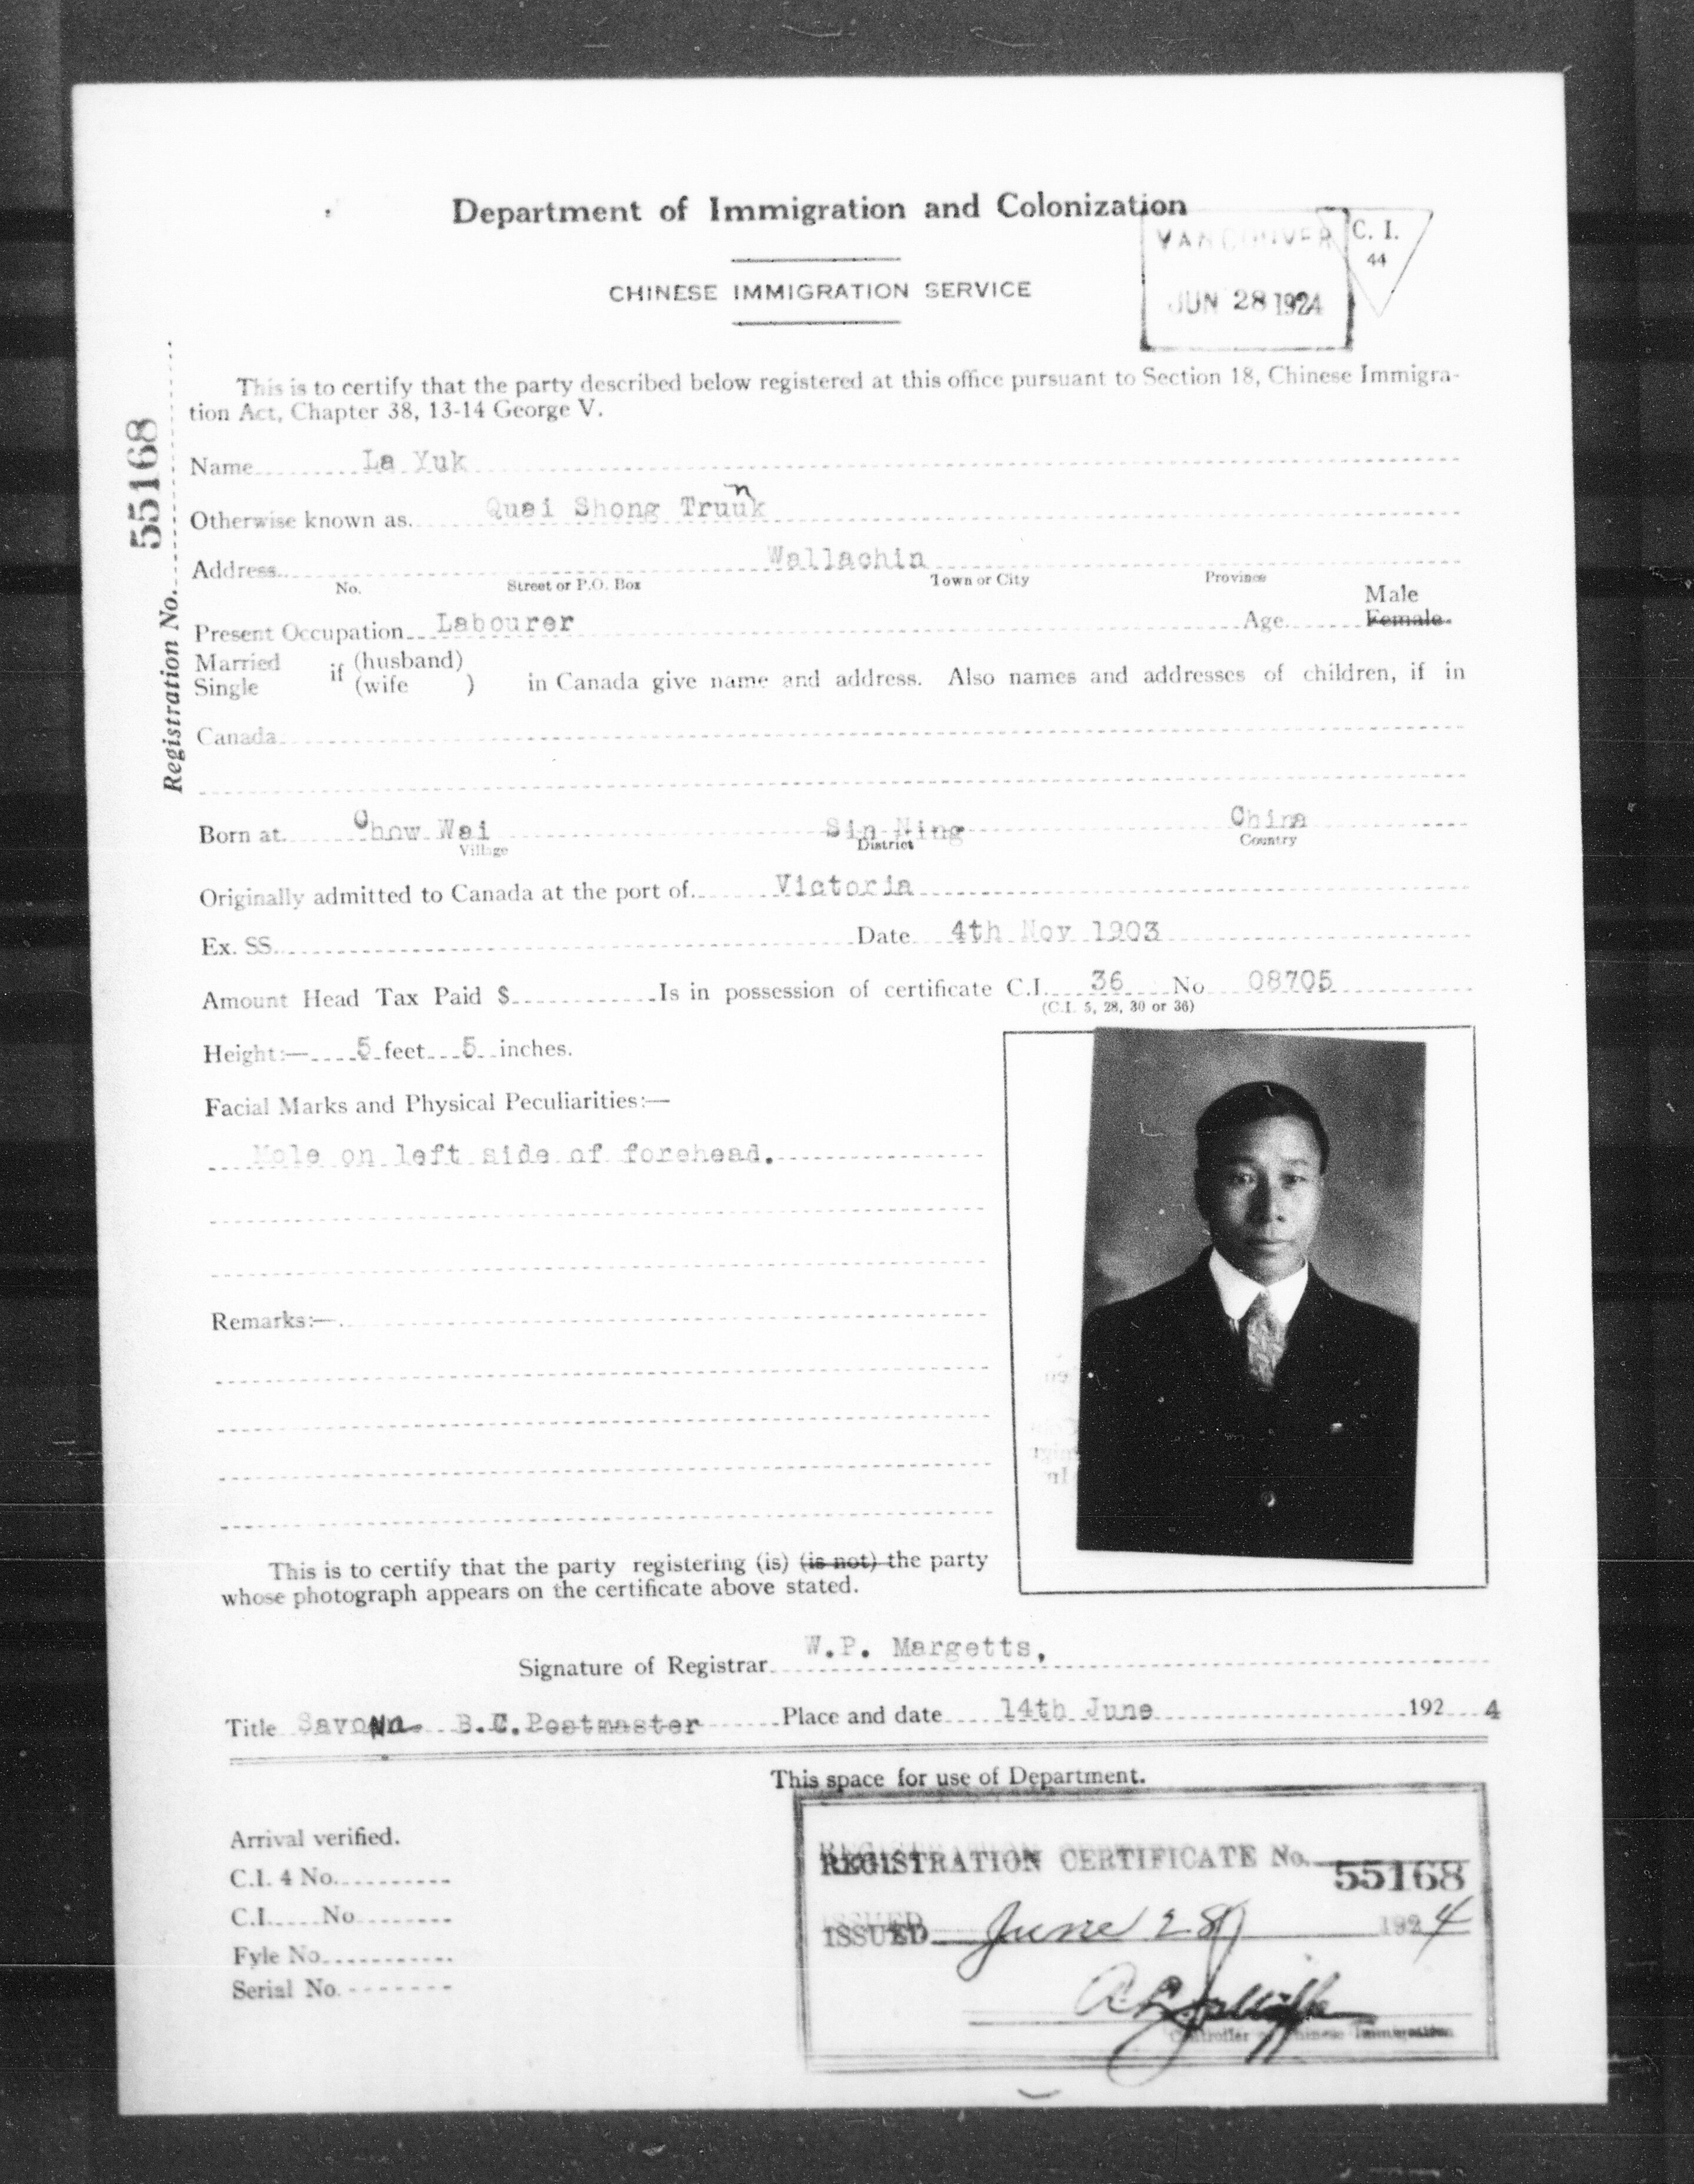 Department of Immigration and Colonization
CHINESE IMMIGRATION SERVICE
VANCOUVER
JUN 28 1924
C. I.
44
Registration No. 55168
This is to certify that the party described below registered at this office pursuant to Section 18, Chinese Immigra-
tion Act, Chapter 38, 13-14 George V.
Name La Yuk
Otherwise known as. Quai Shong Truunk
Address Wallachin
No. Street or P.O. Box Town or City Province
Male
Present Occupation Labourer Age Female
Married if (husband)
Single (wife ) in Canada give name and address. Also names and addresses of children, if in
Canada
Born at Chow Wai Sin Ning China
Village District Country
Originally admitted to Canada at the port of Victoria
Ex. SS. Date 4th Nov 1903
Amount Head Tax Paid $ Is in possession of certificate C.I. 36 No 08705
(C.I. 5, 28, 30 or 36)
Height:— 5 feet 5 inches.
Facial Marks and Physical Peculiarities:—
Mole on left side of forehead.
Remarks:—
This is to certify that the party registering (is) (is not) the party
whose photograph appears on the certificate above stated.
Signature of Registrar W.P. Margetts,
Title Savona B.C. Postmaster Place and date 14th June 1924
This space for use of Department.
Arrival verified.
C.I. 4 No.
C.I. No
Fyle No
Serial No.
REGISTRATION CERTIFICATE No. 55168
ISSUED June 28 1924
Controller of Chinese Immigration